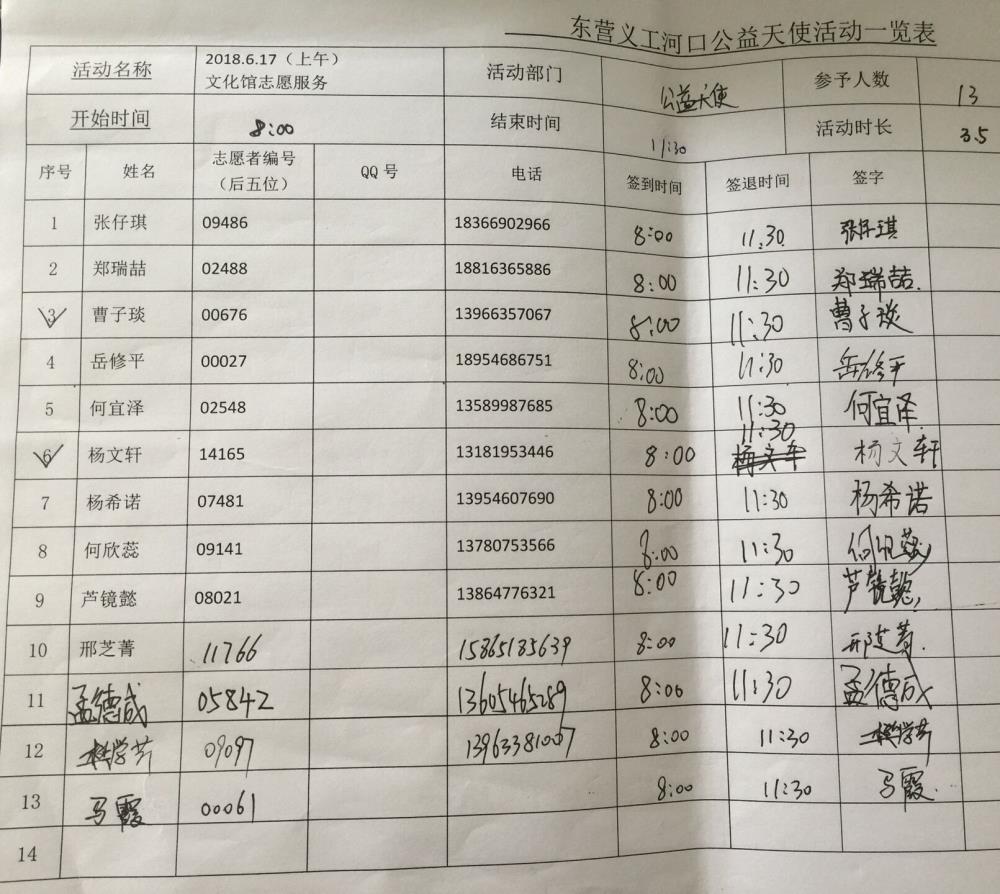 东营义工河口公益天使活动一览表
活动名称 2018.6.17（上午） 文化馆志愿服务 活动部门 公益天使 参予人数 13
开始时间 8:00 结束时间 11:30 活动时长 3.5
序号 姓名 志愿者编号（后五位） QQ号 电话 签到时间 签退时间 签字
1 张仔琪 09486 18366902966 8:00 11.30 张仔琪
2 郑瑞喆 02488 18816365886 8:00 11:30 郑瑞喆.
3 曹子琰 00676 13966357067 8:00 11:30 曹子琰
4 岳修平 00027 18954686751 8:00 11:30 岳修平
5 何宜泽 02548 13589987685 8:00 11:30 何宜泽
6 杨文轩 14165 13181953446 8:00 11:30 杨文轩
7 杨希诺 07481 13954607690 8:00 11:30 杨希诺
8 何欣蕊 09141 13780753566 8:00 11:30 何欣蕊
9 芦镜懿 08021 13864776321 8:00 11:30 芦镜懿
10 邢芝菁 11766 15865185639 8:00 11:30 邢芝菁.
11 孟德成 05842 13605465289 8:00 11:30 孟德成
12 09097 13963381007 8:00 11:30
13 马霞 00061 8:00 11:30 马霞.
14